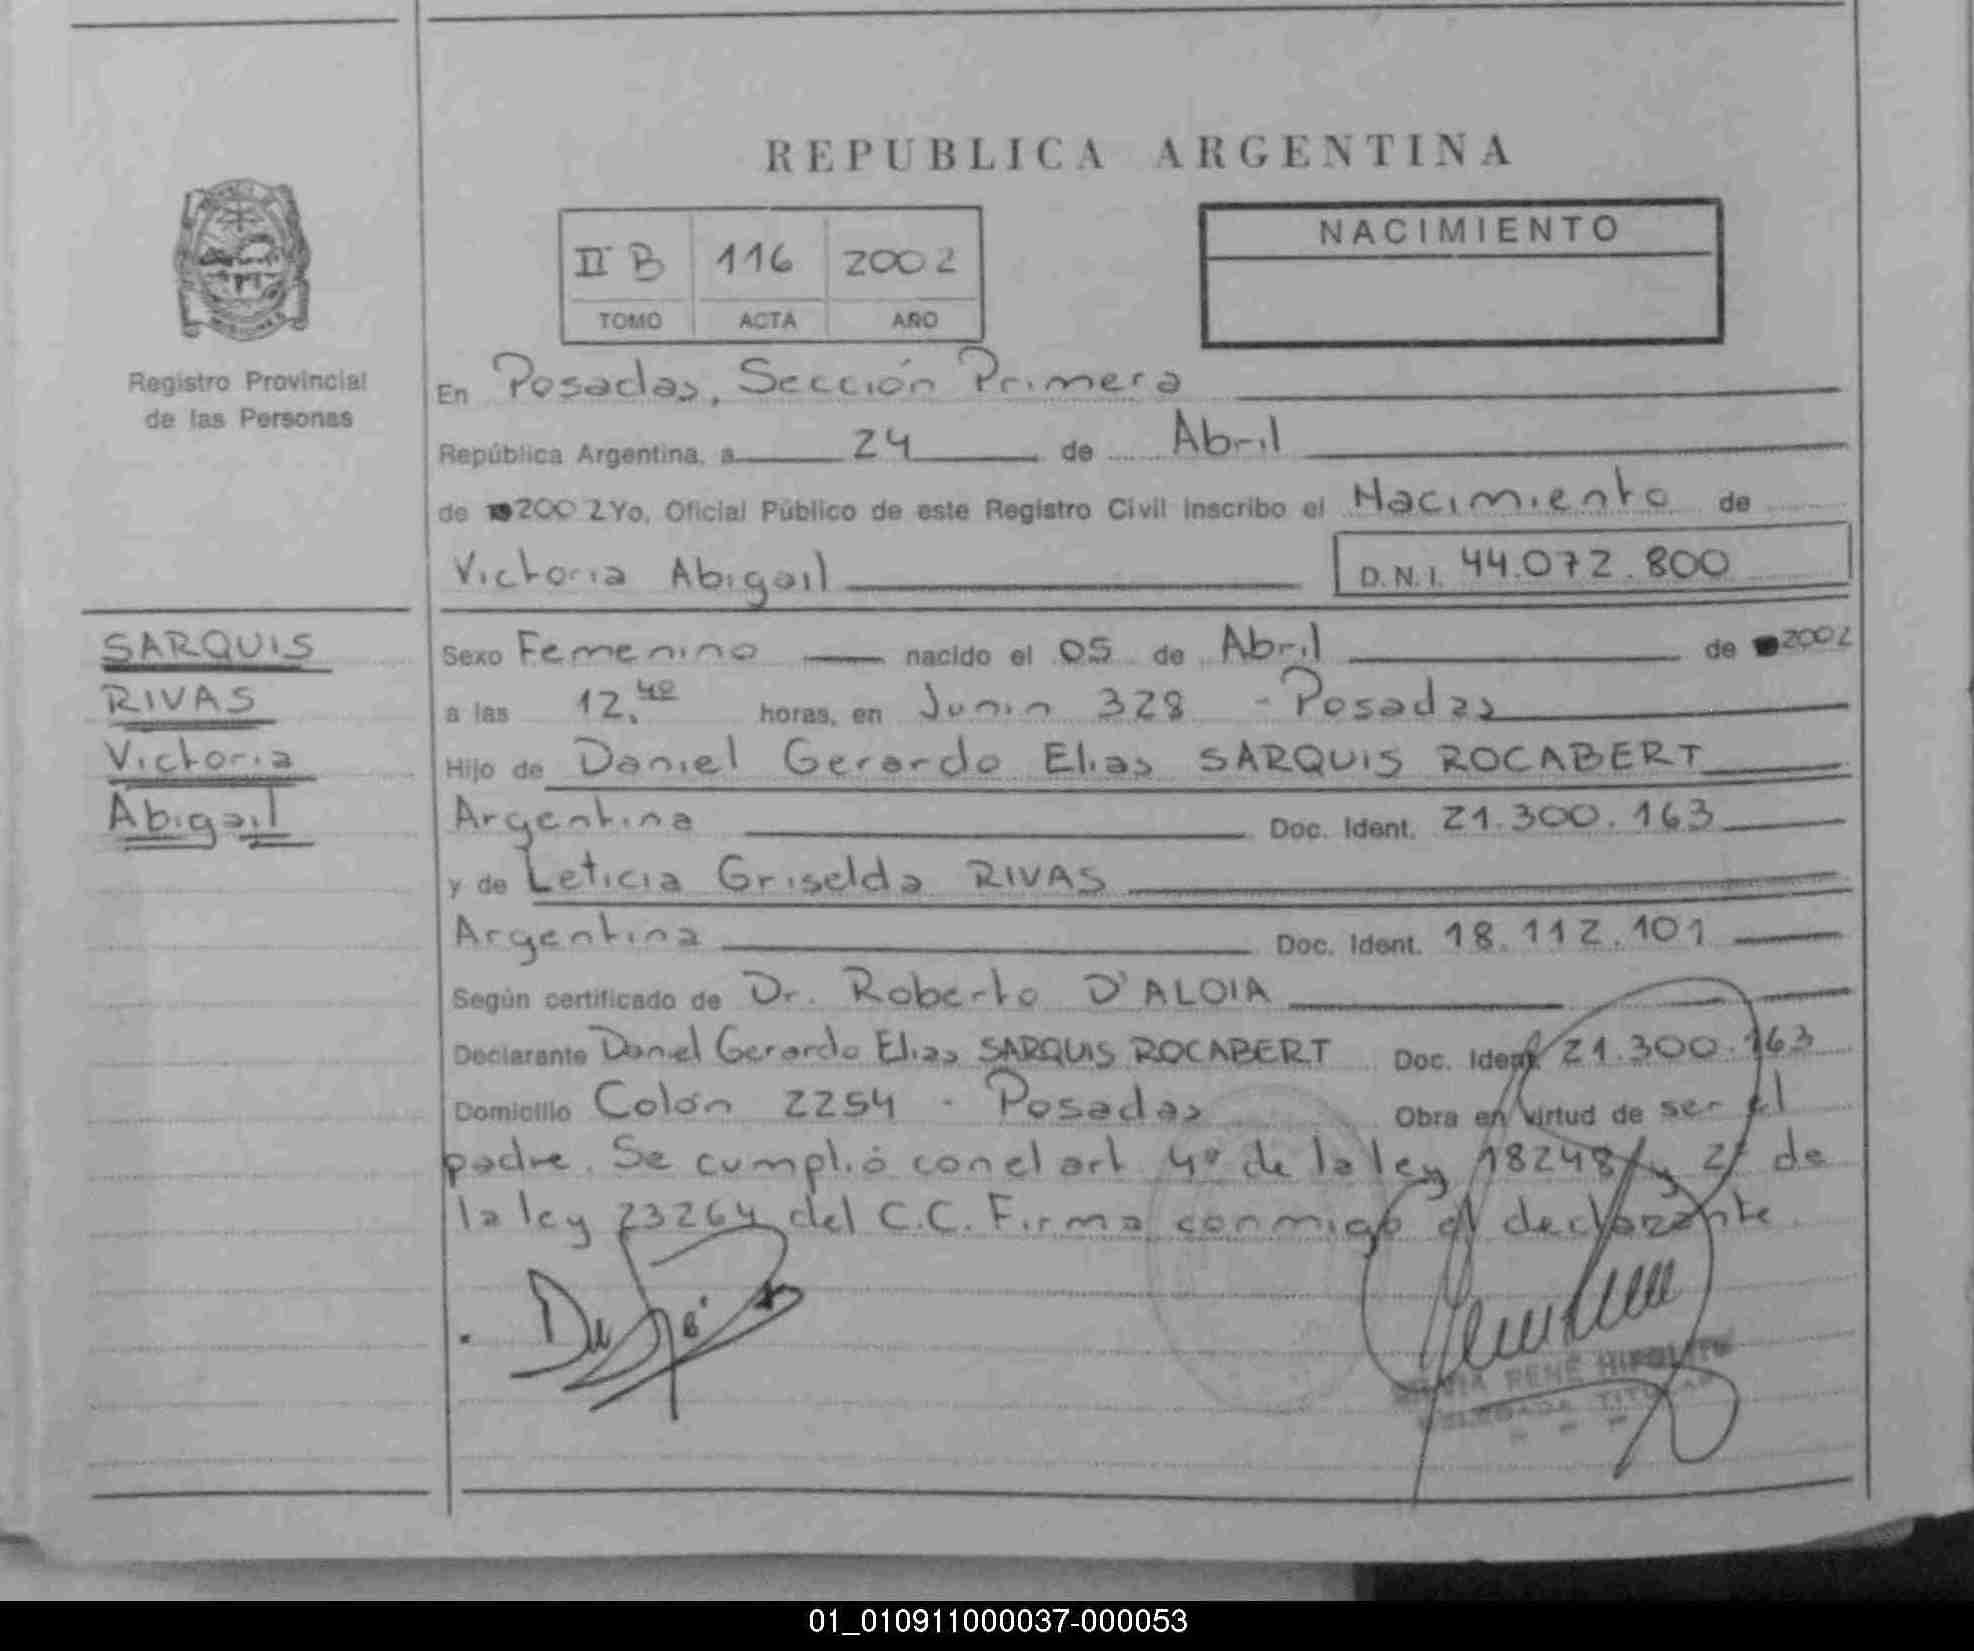 REPUBLICA ARGENTINA
NACIMIENTO
II B 116 2002
TOMO ACTA AÑO
Registro Provincial
de las Personas
En Posadas, Sección Primera
República Argentina, a 24 de Abril
de 2002 Yo, Oficial Público de este Registro Civil inscribo el Nacimiento de
Victoria Abigail D.N.I. 44.072.800
SARQUIS
RIVAS
Victoria
Abigail
Sexo Femenino nacido el 05 de Abril de 2002
a las 12.40 horas, en Junin 328 - Posadas
Hijo de Daniel Gerardo Elias SARQUIS ROCABERT
Argentina Doc. Ident. 21.300.163
y de Leticia Griselda RIVAS
Argentina Doc. Ident. 18.112.101
Según certificado de Dr. Roberto D'ALOIA
Declarante Daniel Gerardo Elias SARQUIS ROCABERT Doc. Ident. 21.300.163
Domicilio Colón 2254 - Posadas Obra en virtud de ser el
padre. Se cumplió con el art 4º de la ley 18248 y 2º de
la ley 23264 del C.C. Firma conmigo el declarante.
RENÉ HIPOLITO
DELEGADA TITULAR
01_010911000037-000053